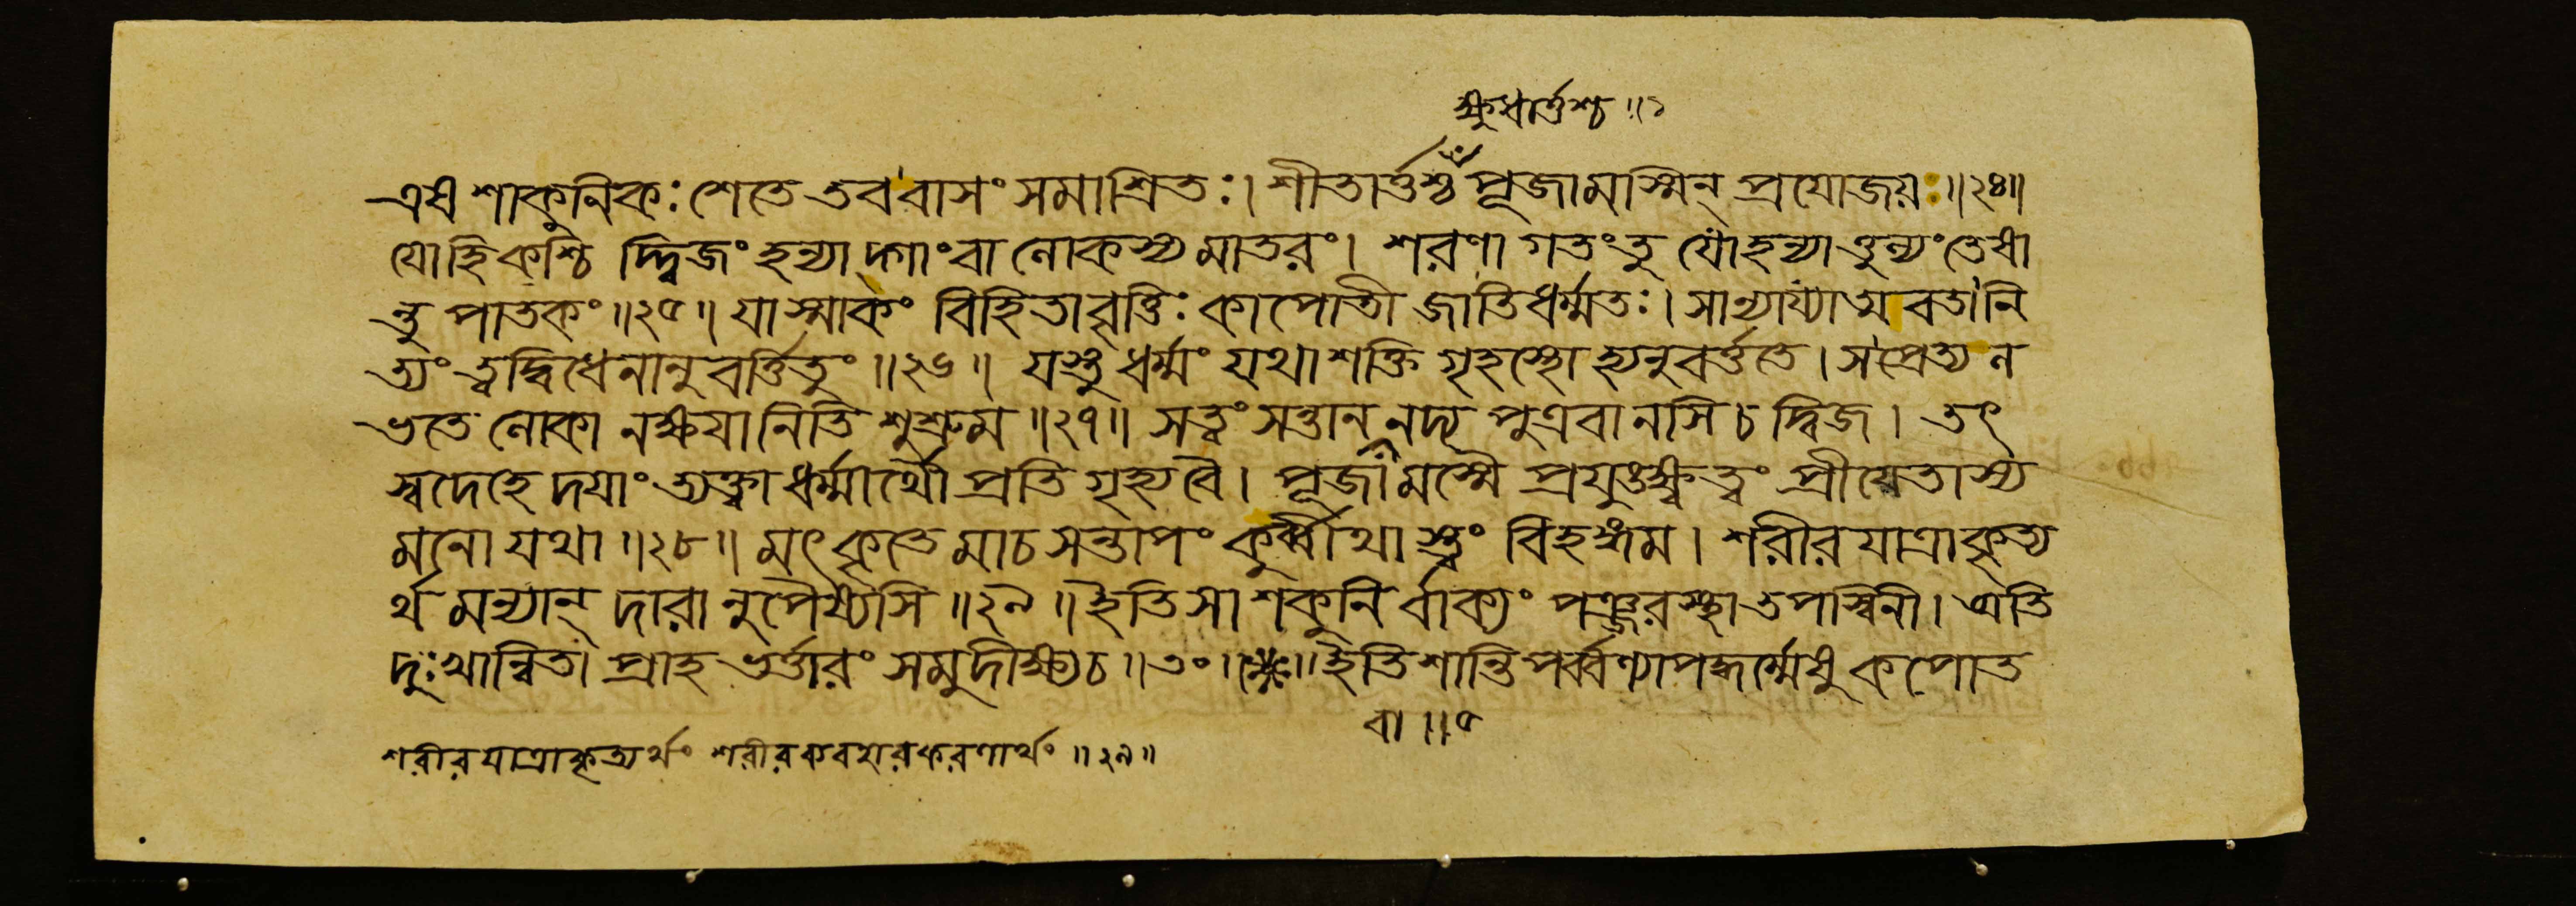 ক্ষুধার্ত্তশ্চ ॥১
এষ শাকুনিকঃ শেতে তব বাসং সমাশ্রিতঃ। শীতার্ত্তশ্চ পূজামস্মিন্ প্রযোজয়ঃ॥২৪॥
যো হি কশ্চি দ্দ্বিজং হন্যাদ্গাং বা লোকস্য মাতরং। শরণা গতং তু যো হন্যাত্তুল্যং তেষা
ন্তু পাতকং॥২৫॥ যাস্মাকং বিহিতাবৃত্তিঃ কাপোতী জাতিধর্ম্মতঃ। সান্যায্যাত্মবতানি
ত্যং ত্বদ্বিধেনানুবর্ত্তিতুং॥২৬॥ যস্তু ধর্ম্মং যথাশক্তি গৃহস্থো হ্যনুবর্ত্ততে। স প্রেত্য ল
ভতে লোকা নক্ষয়ানিতি শুশ্রুম॥২৭॥ সত্বং সন্তানবানদ্য পুত্রবানসি চ দ্বিজ। তৎ
স্বদেহে দয়াং ত্যক্ত্বা ধর্ম্মার্থৌ প্রতিগৃহ্যবৈ। পূজামস্মৈ প্রযুঙ্ক্ষ্ব ত্বং প্রীয়েতাস্য
মনো যথা॥২৮॥ মৎকৃতে মাচ সন্তাপং কুর্ব্বীথাস্ত্বং বিহঙ্গম। শরীরযাত্রাকৃত্য
র্থ মন্যান্ দারানুপৈষ্যসি॥২৯॥ ইতি সা শকুনির্বাক্যং পঞ্জরস্থা তপস্বিনী। অতি
দুঃখান্বিতা প্রাহ ভর্ত্তারং সমুদীক্ষ্যচ॥৩০॥ ইতি শান্তিপর্ব্বণ্যাপদ্ধর্ম্মেষু কপোত
বা॥৫
শরীরযাত্রাকৃত্যর্থং শরীরব্যবহারকরণার্থং॥২৯॥